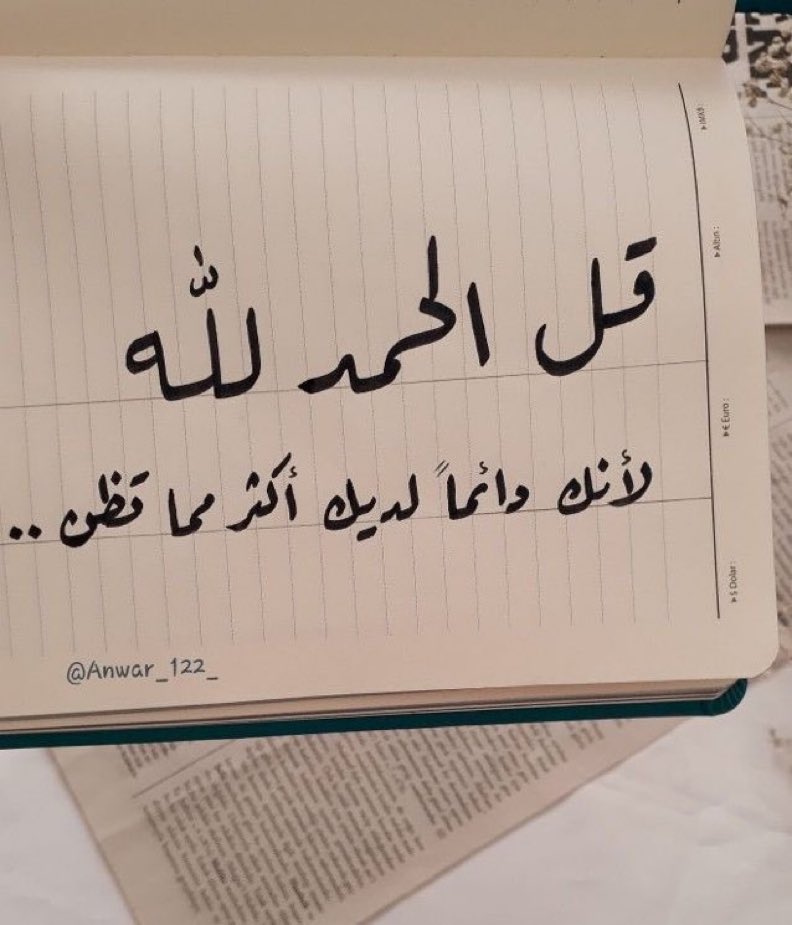 قل الحمد لله
لأنك دائماً لديك أكثر مما تظن ..
@Anwar_122_
Altın :
€ Euro :
$ Dolar :